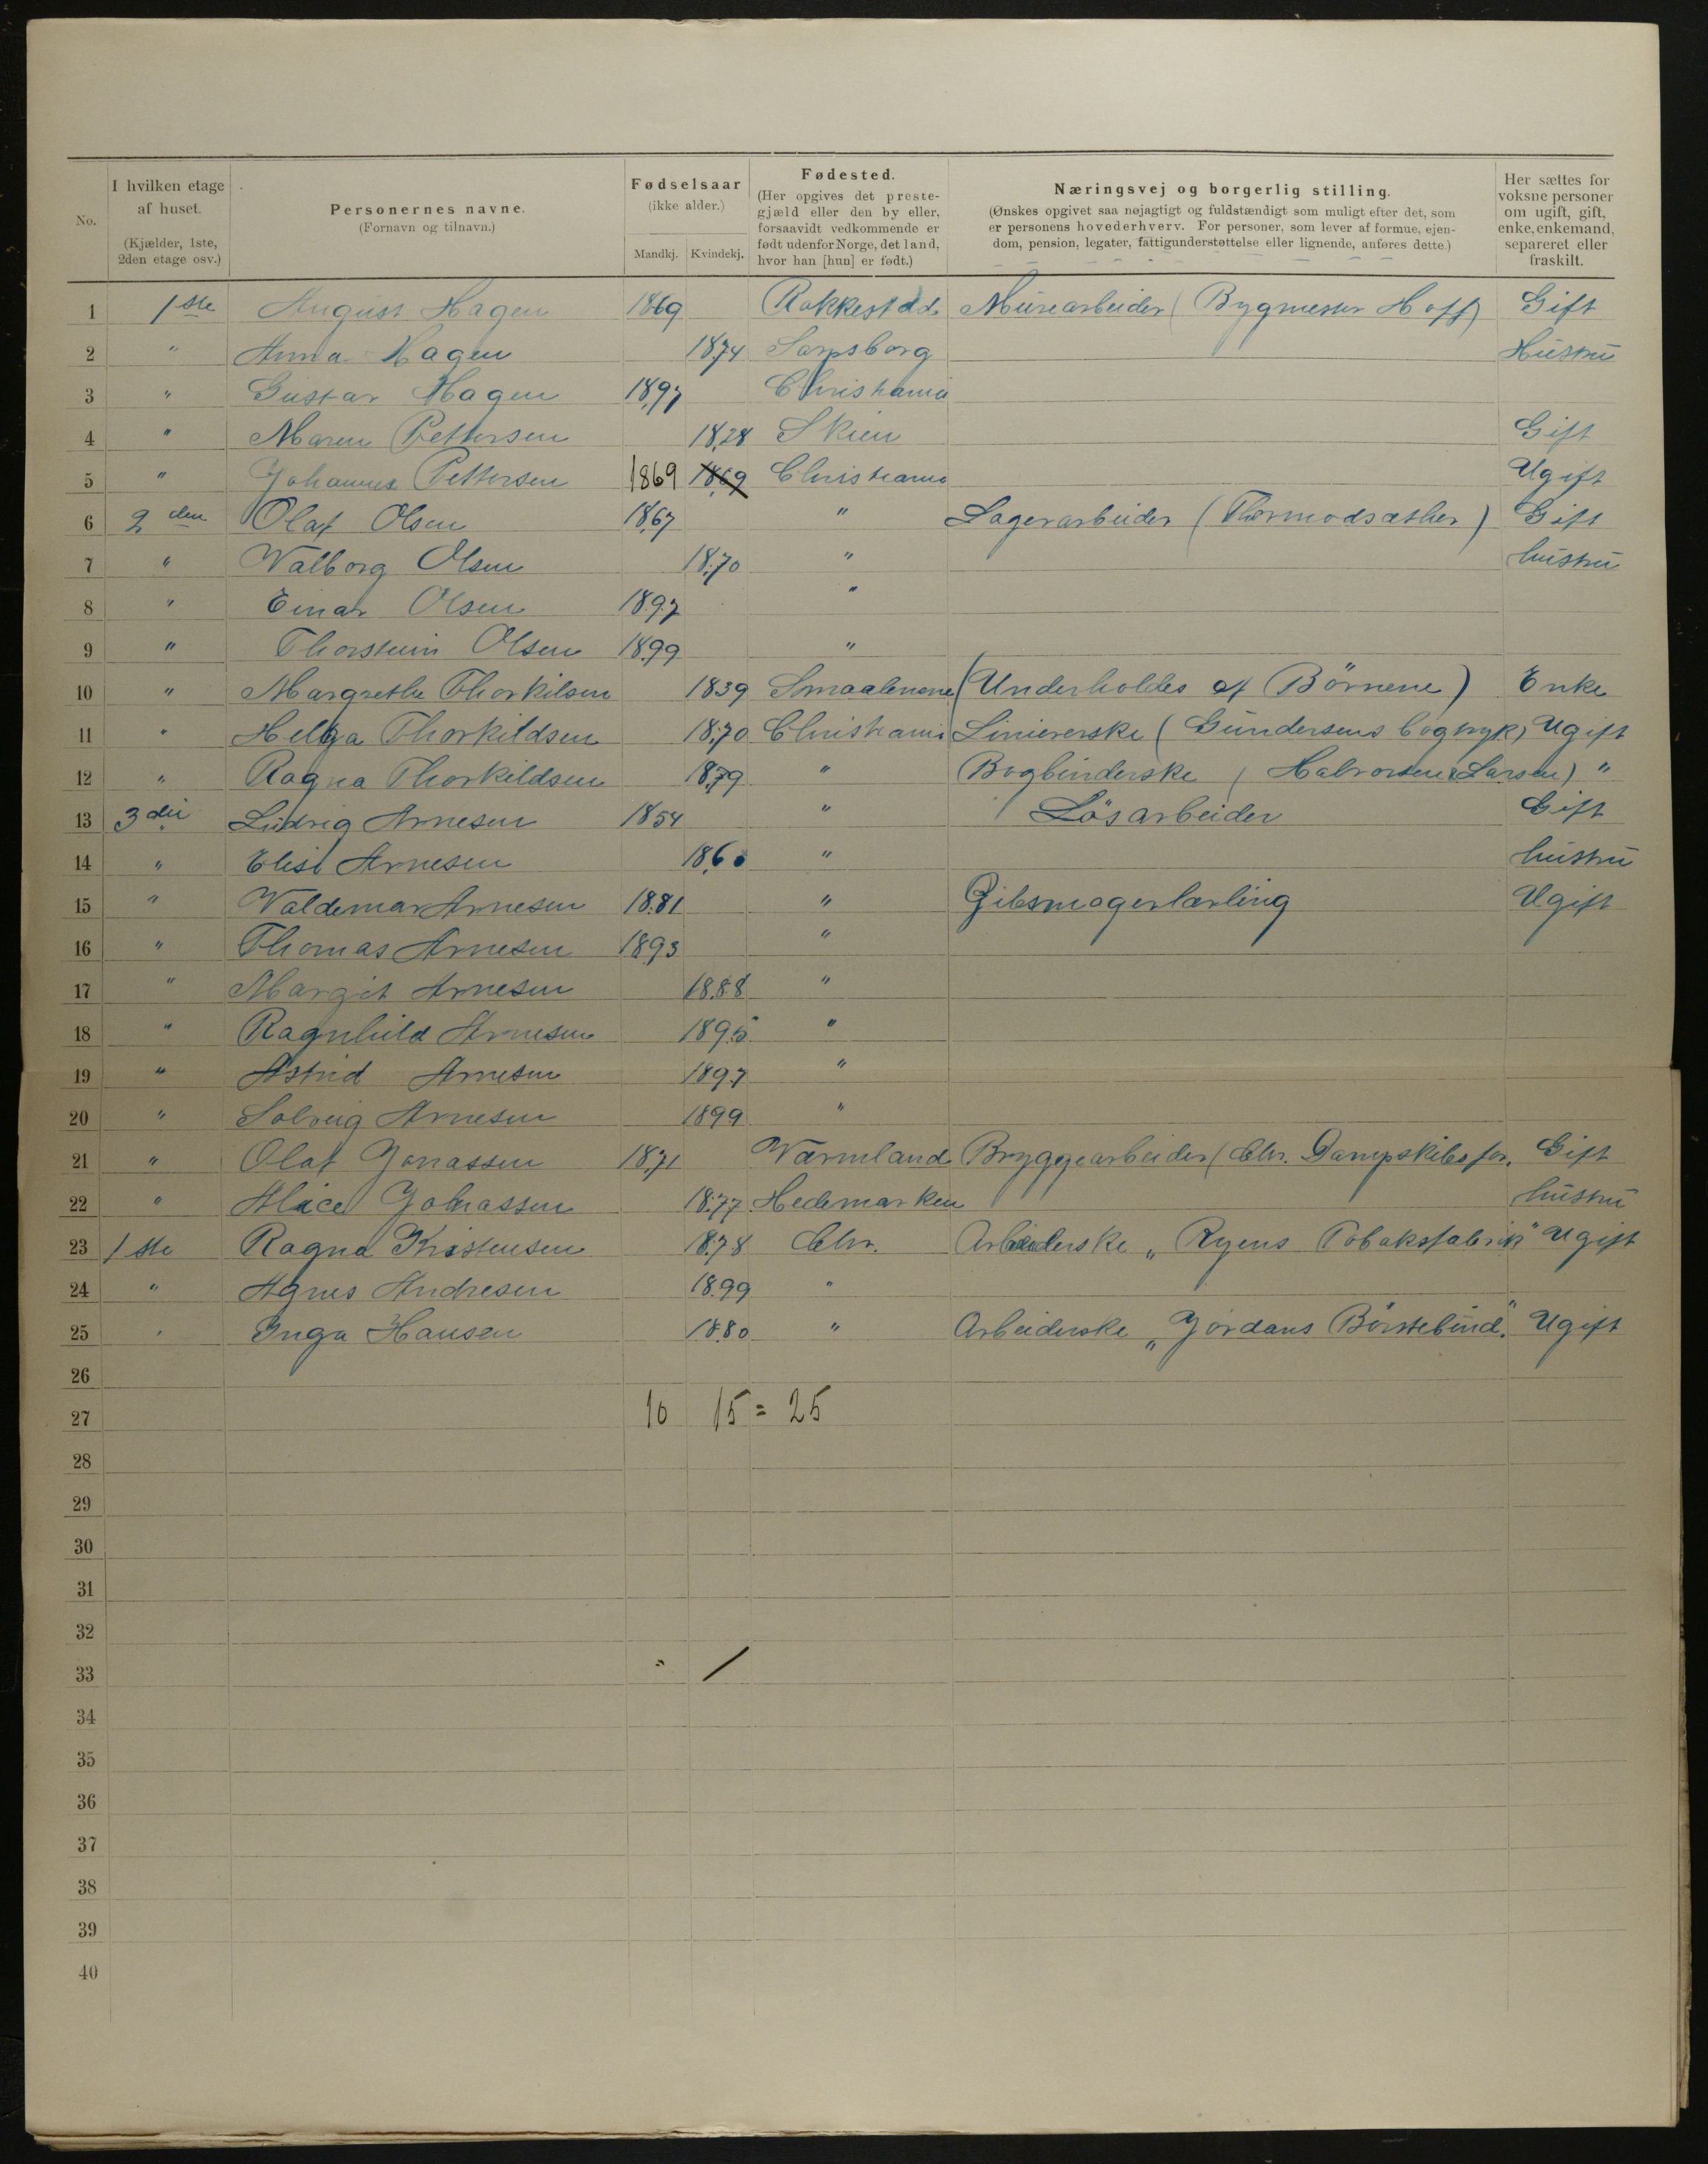 No.
I hvilken etage af huset. (Kjælder, 1ste, 2den etage osv.)
Personernes navne. (Fornavn og tilnavn.)
Fødselsaar (ikke alder.)
Mandkj. Kvindekj.
Fødested. (Her opgives det prestegjæld eller den by eller, forsaavidt vedkommende er født udenfor Norge, det land, hvor han [hun] er født.)
Næringsvej og borgerlig stilling. (Ønskes opgivet saa nøjagtigt og fuldstændigt som muligt efter det, som er personens hovederhverv. For personer, som lever af formue, ejendom, pension, legater, fattigunderstøttelse eller lignende, anføres dette.)
Her sættes for voksne personer om ugift, gift, enke, enkemand, separeret eller fraskilt.
1 1ste August Hagen 1869 Rakkestad Murearbeider (Bygmester Hoff) Gift
2 " Anna Hagen 1874 Sarpsborg Hustru
3 " Gustav Hagen 1897 Christiania
4 " Maren Pettersen 1828 Skien Gift
5 " Johannes Pettersen 1869 1869 Christiania Ugift
6 2den Olaf Olsen 1867 " Lagerarbeider (Thormodsæther) Gift
7 " Valborg Olsen 1870 " hustru
8 " Einar Olsen 1897 "
9 " Thorstein Olsen 1899 "
10 " Margrethe Thorkilsen 1839 Smaalenene (Underholdes af Börnene) Enke
11 " Helga Thorkildsen 1870 Christiania Liniererske (Gundersens bogtryk) Ugift
12 " Ragna Thorkildsen 1879 " Bogbinderske (Halvorsen & Larsen) "
13 3die Ludvig Arnesen 1854 " Lösarbeider Gift
14 " Elise Arnesen 1860 " hustru
15 " Valdemar Arnesen 1881 " Gibsmagerlærling Ugift
16 " Thomas Arnesen 1893 "
17 " Margit Arnesen 1888 "
18 " Ragnhild Arnesen 1895 "
19 " Astrid Arnesen 1897 "
20 " Solveig Arnesen 1899 "
21 " Olaf Jonassen 1871 Värmland Bryggearbeider (Chr. Dampskibsfor. Gift
22 " Alice Johnassen 1877 Hedemarken hustru
23 1ste Ragna Kristensen 1878 Chr. Arbeiderske „Ryens Tobaksfabrik" Ugift
24 " Agnes Andresen 1899 "
25 " Inga Hansen 1880 " Arbeiderske „Jordans Börstebind." Ugift
26
27 10 15 = 25
28
29
30
31
32
33 " /
34
35
36
37
38
39
40